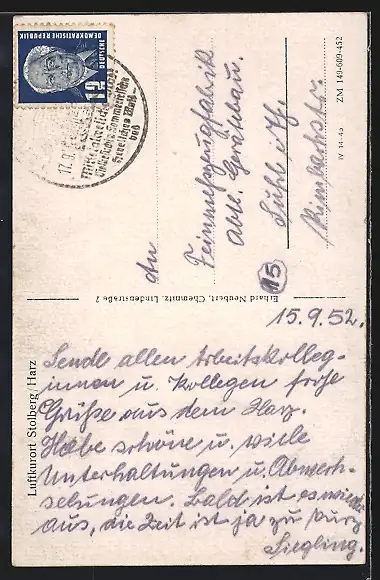 DEUTSCHE
DEMOKRATISCHE REPUBLIK
12
17.9.
und
An
Feinmeßzeugfabrik
Abt. Gräfbau.
Suhl i. Th.
Rimbachstr.
15
W 14-45 ZM 140-609-452
Erhard Neubert, Chemnitz, Lindenstraße 2
Luftkurort Stolberg/Harz
15.9.52.
Sende allen Arbeitskolleg-
innen u. Kollegen frohe
Grüße aus dem Harz.
Habe schöne u. viele
Unterhaltungen u. Abwech-
selungen. Bald ist es wieder
aus, die Zeit ist ja zu kurz
Siegling.